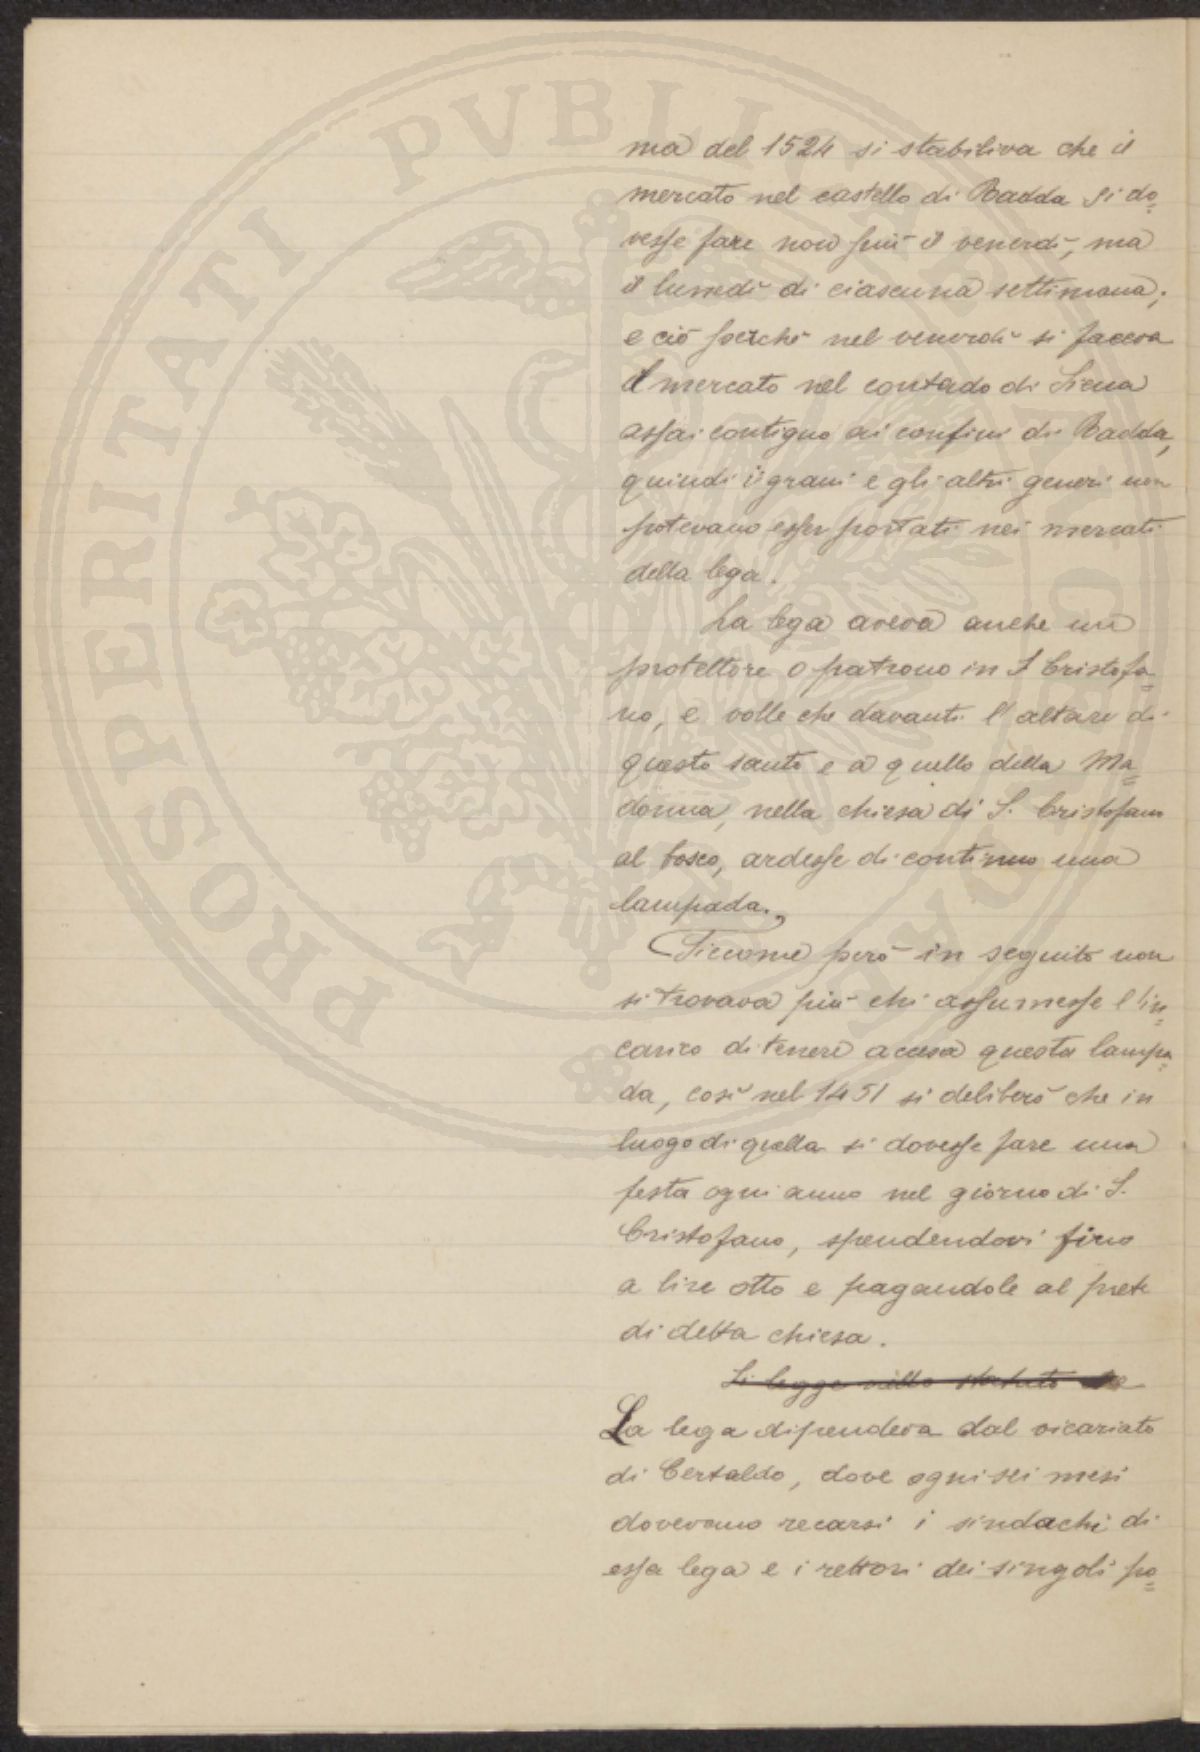 ma del 1524 si stabiliva che il
mercato nel castello di Radda si do=
vesse fare non più il venerdì, ma
il lunedì di ciascuna settimana;
e ciò perché nel venerdì si faceva
il mercato nel contado di Siena
assai contiguo ai confini di Radda,
quindi i grani e gli altri generi non
potevano esser portati nei mercati
della lega.
La lega aveva anche un
protettore o patrono in S Cristofa=
no, e volle che davanti l'altare di
questo santo e a quello della Ma=
donna, nella chiesa di S. Cristofano
al bosco, ardesse di continuo una
lampada.
Siccome però in seguito non
si trovava più chi assumesse l'in=
carico di tenere accesa questa lampa=
da, così nel 1451 si deliberò che in
luogo di quella si dovesse fare una
festa ogni anno nel giorno di S.
Cristofano, spendendovi fino
a lire otto e pagandole al prete
di detta chiesa.
Si legge nello statuto che
La lega dipendeva dal vicariato
di Certaldo, dove ogni sei mesi
dovevano recarsi i sindachi di
essa lega e i rettori dei singoli po=
PROSPERITATI PVBLICAE